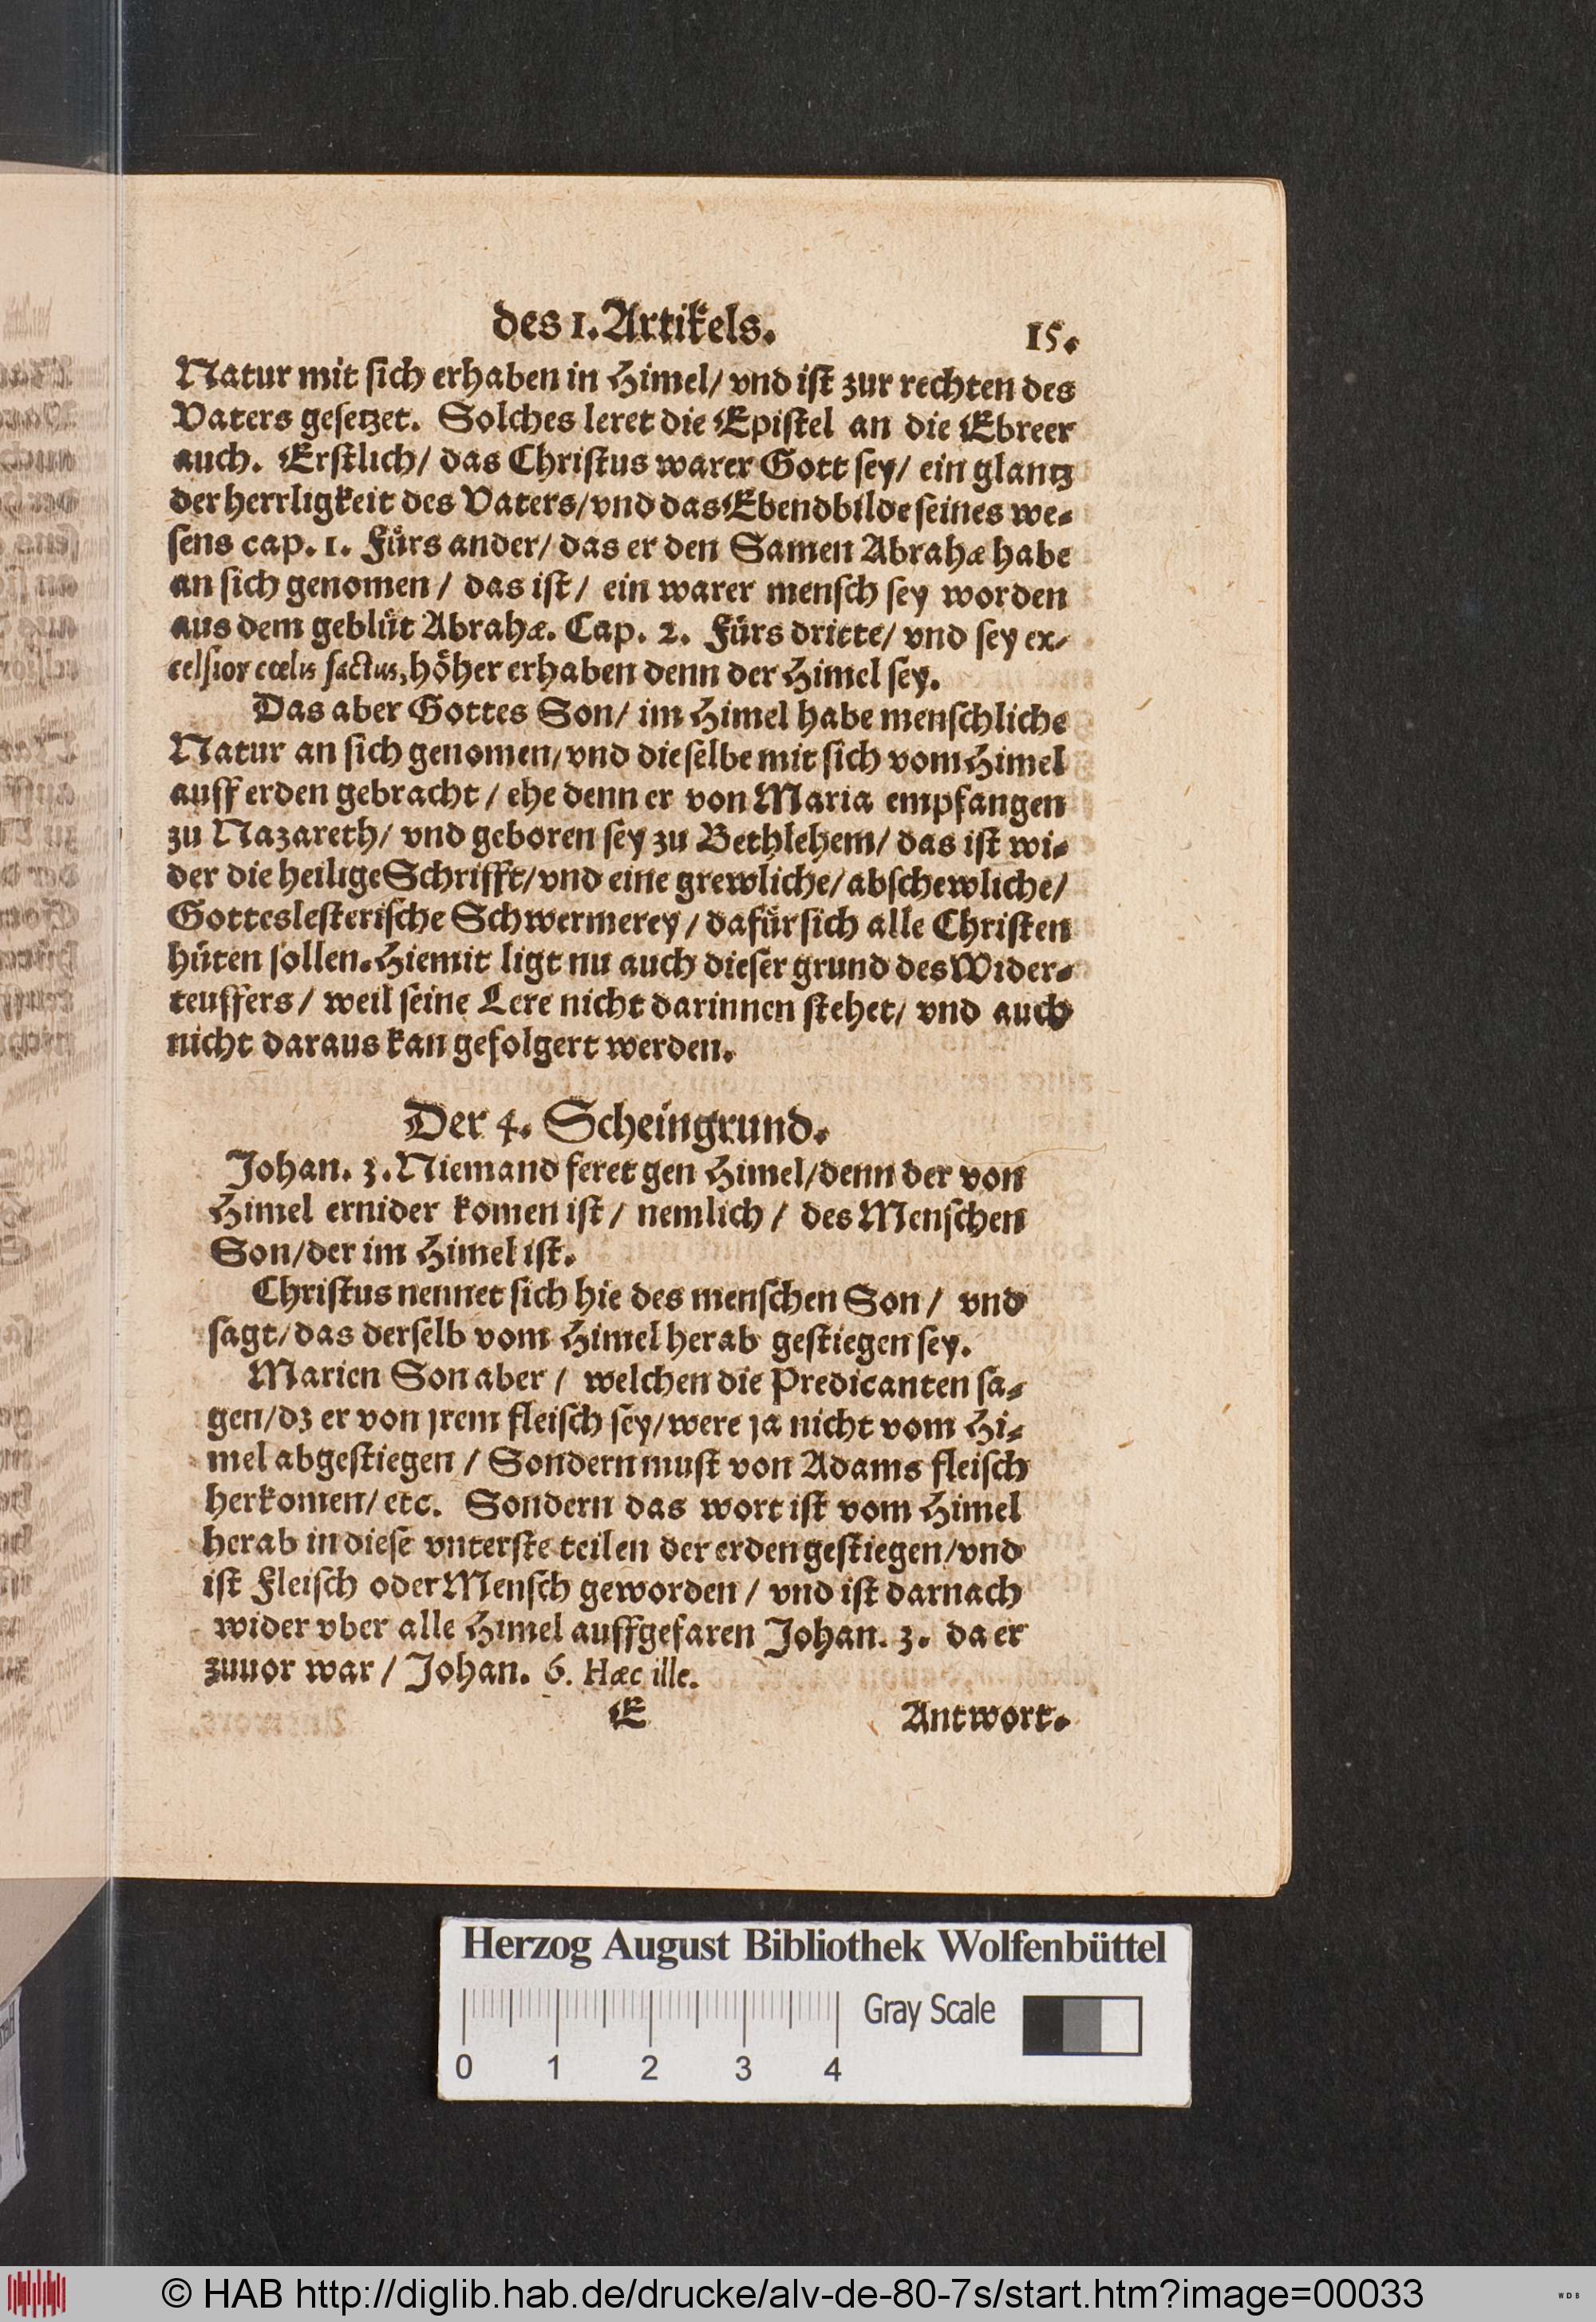 des 1. Artikels. 15.
Natur mit sich erhaben in Himel/ vnd ist zur rechten des
Vaters gesetzet. Solches leret die Epistel an die Ebreer
auch. Erstlich/ das Christus warer Gott sey/ ein glantz
der herrligkeit des Vaters/vnd das Ebendbilde seines we-
sens cap. 1. Fürs ander/ das er den Samen Abrahæ habe
an sich genomen / das ist / ein warer mensch sey worden
aus dem geblüt Abrahæ. Cap. 2. Fürs dritte/ vnd sey ex-
celsior cœlis factus, höher erhaben denn der Himel sey.
Das aber Gottes Son/ im Himel habe menschliche
Natur an sich genomen/vnd dieselbe mit sich vom Himel
auff erden gebracht / ehe denn er von Maria empfangen
zu Nazareth/ vnd geboren sey zu Bethlehem/ das ist wi-
der die heilige Schrifft/vnd eine grewliche/ abschewliche/
Gotteslesterische Schwermerey / dafür sich alle Christen
hüten sollen. Hiemit ligt nu auch dieser grund des Wider-
teuffers / weil seine Lere nicht darinnen stehet/ vnd auch
nicht daraus kan gefolgert werden.
Der 4. Scheingrund.
Johan. 3. Niemand feret gen Himel/denn der von
Himel ernider komen ist / nemlich / des Menschen
Son/der im Himel ist.
Christus nennet sich hie des menschen Son / vnd
sagt/das derselb vom Himel herab gestiegen sey.
Marien Son aber / welchen die Predicanten sa-
gen/dz er von jrem fleisch sey/were ja nicht vom Hi-
mel abgestiegen / Sondern must von Adams fleisch
herkomen/ etc. Sondern das wort ist vom Himel
herab in diese vnterste teilen der erden gestiegen/vnd
ist Fleisch oder Mensch geworden / vnd ist darnach
wider vber alle Himel auffgefaren Johan. 3. da er
zuuor war / Johan. 6. Hæc ille.
E Antwort.
Herzog August Bibliothek Wolfenbüttel
Gray Scale
0 1 2 3 4
© HAB http://diglib.hab.de/drucke/alv-de-80-7s/start.htm?image=00033
WDB